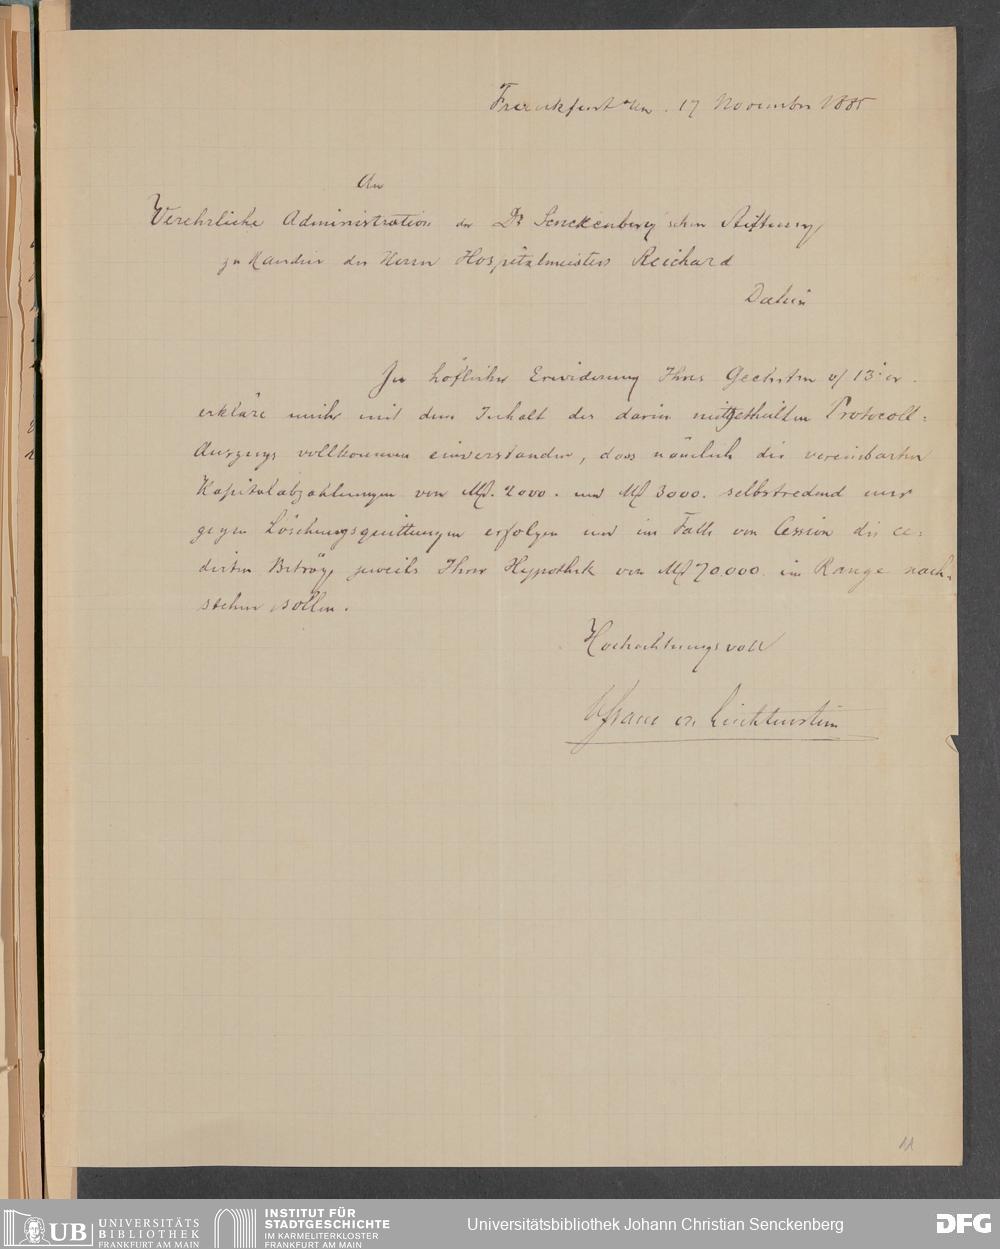 Frankfurt a/m. 17 November 1885
An
Verehrliche Administration der Dr Senckenberg'schen Stiftung
zu Handen des Herrn Hospitalmeisters Reichard
Dahier
In höflicher Erwiderung Ihres Geehrten v/ 13. er.
erkläre mich mit dem Inhalt des darin mitgetheilten Protocoll-
Auszugs vollkommen einverstanden, dass nämlich die vereinbarten
Kapitalabzahlungen von Mk. 2000. und Mk 3000. selbstredend nur
gegen Löschungsquittungen erfolgen und im Falle von Cession die ce-
dirten Beträge jeweils Ihrer Hypothek von Mk 70,000. im Range nach-
stehen sollen.
Hochachtungsvoll
Lichtenstein
11
UB
UNIVERSITÄTS
BIBLIOTHEK
FRANKFURT AM MAIN
INSTITUT FÜR
STADTGESCHICHTE
IM KARMELITERKLOSTER
FRANKFURT AM MAIN
Universitätsbibliothek Johann Christian Senckenberg
DFG